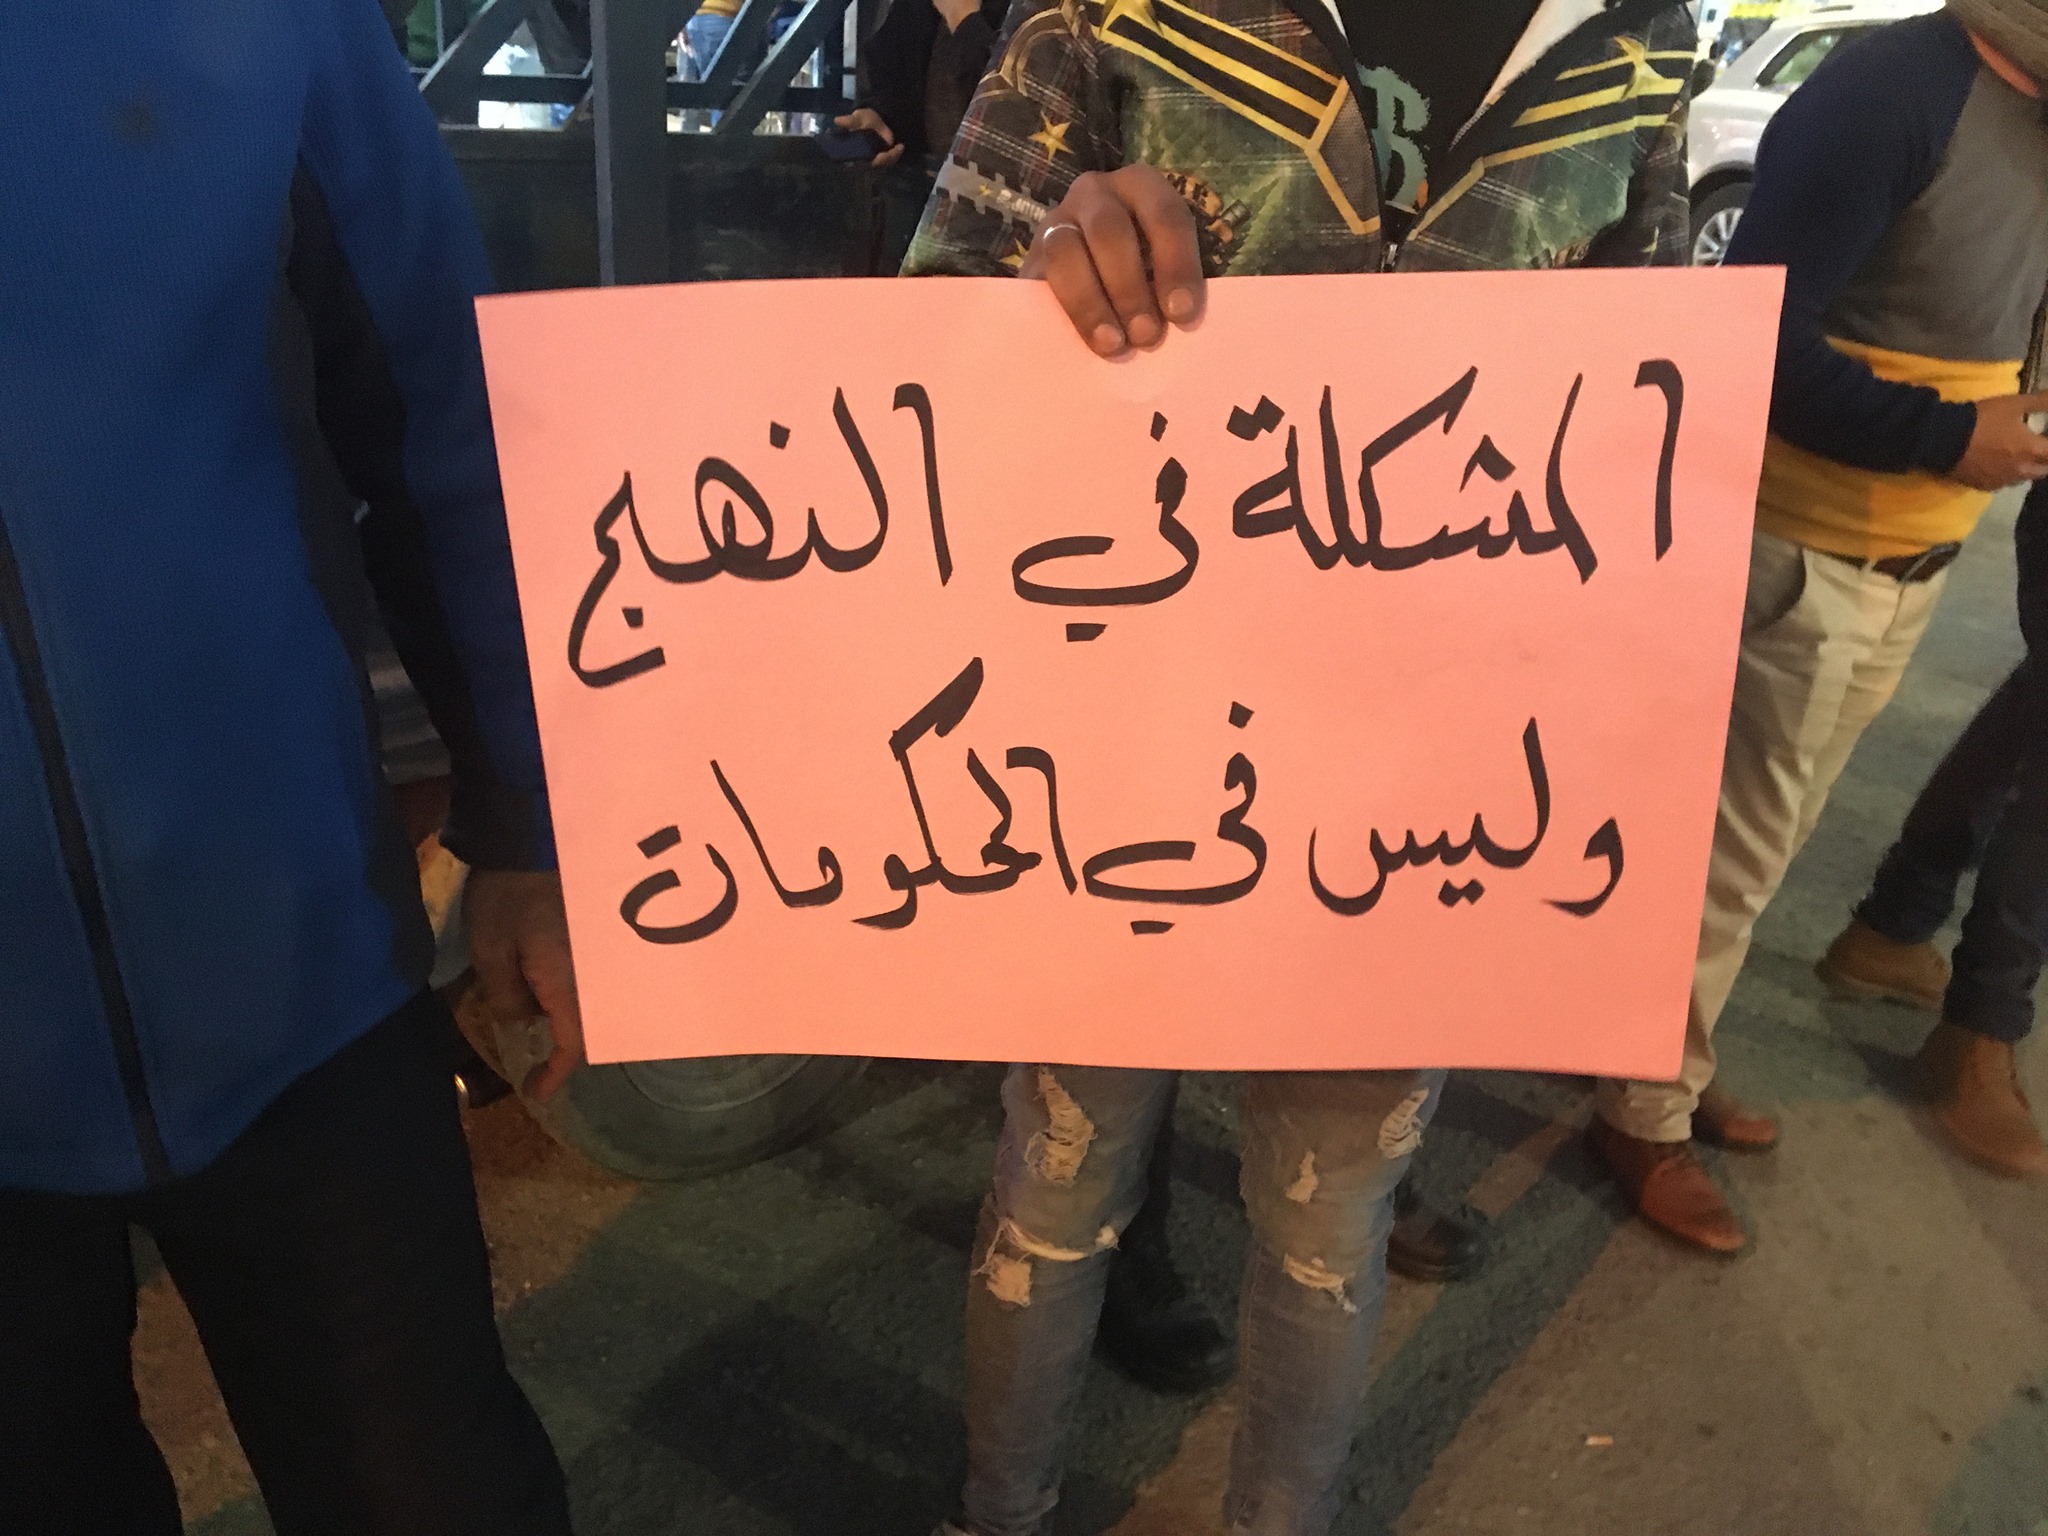 المشكلة في النهج
وليس في الحكومات